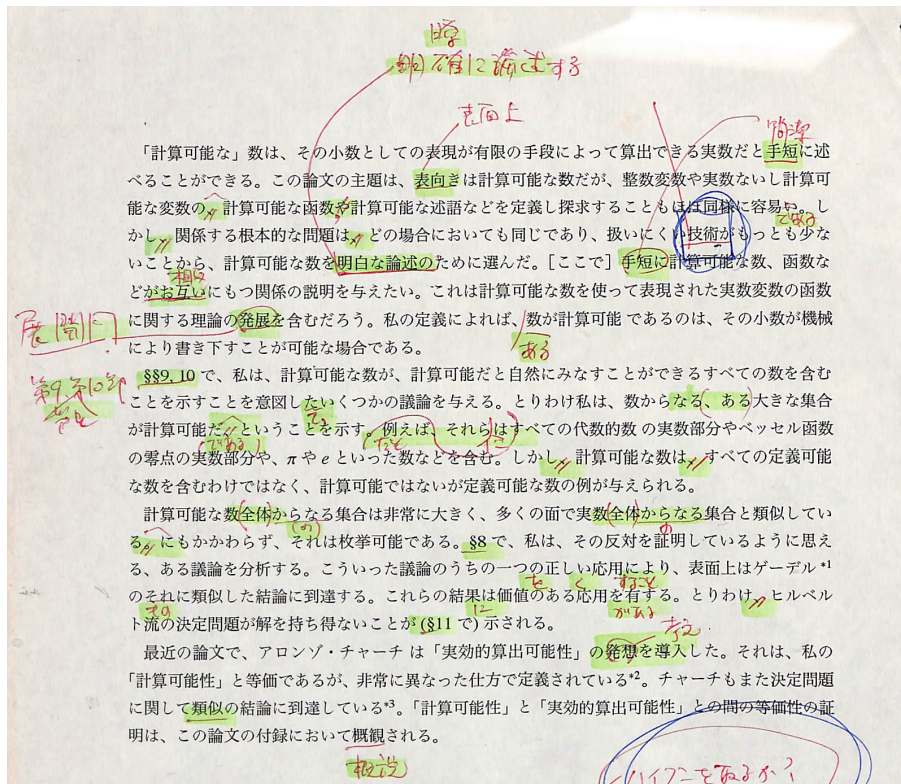 明確に論述する
表面上
簡潔
「計算可能な」数は、その小数としての表現が有限の手段によって算出できる実数だと手短に述
べることができる。この論文の主題は、表向きは計算可能な数だが、整数変数や実数ないし計算可
能な変数の、計算可能な函数や計算可能な述語などを定義し探求することもほぼ同様に容易い。し
である
かし、関係する根本的な問題は、どの場合においても同じであり、扱いにくい技術がもっとも少な
いことから、計算可能な数を明白な論述のために選んだ。[ここで] 手短に計算可能な数、函数な
相互
どがお互いにもつ関係の説明を与えたい。これは計算可能な数を使って表現された実数変数の函数
展開
に関する理論の発展を含むだろう。私の定義によれば、数が計算可能 であるのは、その小数が機械
により書き下すことが可能な場合である。
ある
第9,第10節
§§9, 10 で、私は、計算可能な数が、計算可能だと自然にみなすことができるすべての数を含む
ことを示すことを意図したいくつかの議論を与える。とりわけ私は、数からなる ある大きな集合
が計算可能だ、ということを示す。例えば、それらはすべての代数的数 の実数部分やベッセル函数
(である)
の零点の実数部分や、π や e といった数などを含む。しかし、計算可能な数は、すべての定義可能
な数を含むわけではなく、計算可能ではないが定義可能な数の例が与えられる。
計算可能な数全体からなる集合は非常に大きく、多くの面で実数全体からなる集合と類似してい
(の)
の
る、にもかかわらず、それは枚挙可能である。§8 で、私は、その反対を証明しているように思え
る、ある議論を分析する。こういった議論のうちの一つの正しい応用により、表面上はゲーデル *1
のそれに類似した結論に到達する。これらの結果は価値のある応用を有する。とりわけ、ヒルベル
に
がある
ト流の決定問題が解を持ち得ないことが (§11 で) 示される。
考え
最近の論文で、アロンゾ・チャーチ は「実効的算出可能性」の発想を導入した。それは、私の
「計算可能性」と等価であるが、非常に異なった仕方で定義されている*2。チャーチもまた決定問題
に関して類似の結論に到達している*3。「計算可能性」と「実効的算出可能性」との間の等価性の証
明は、この論文の付録において概観される。
概説
ハイフンを取るか?